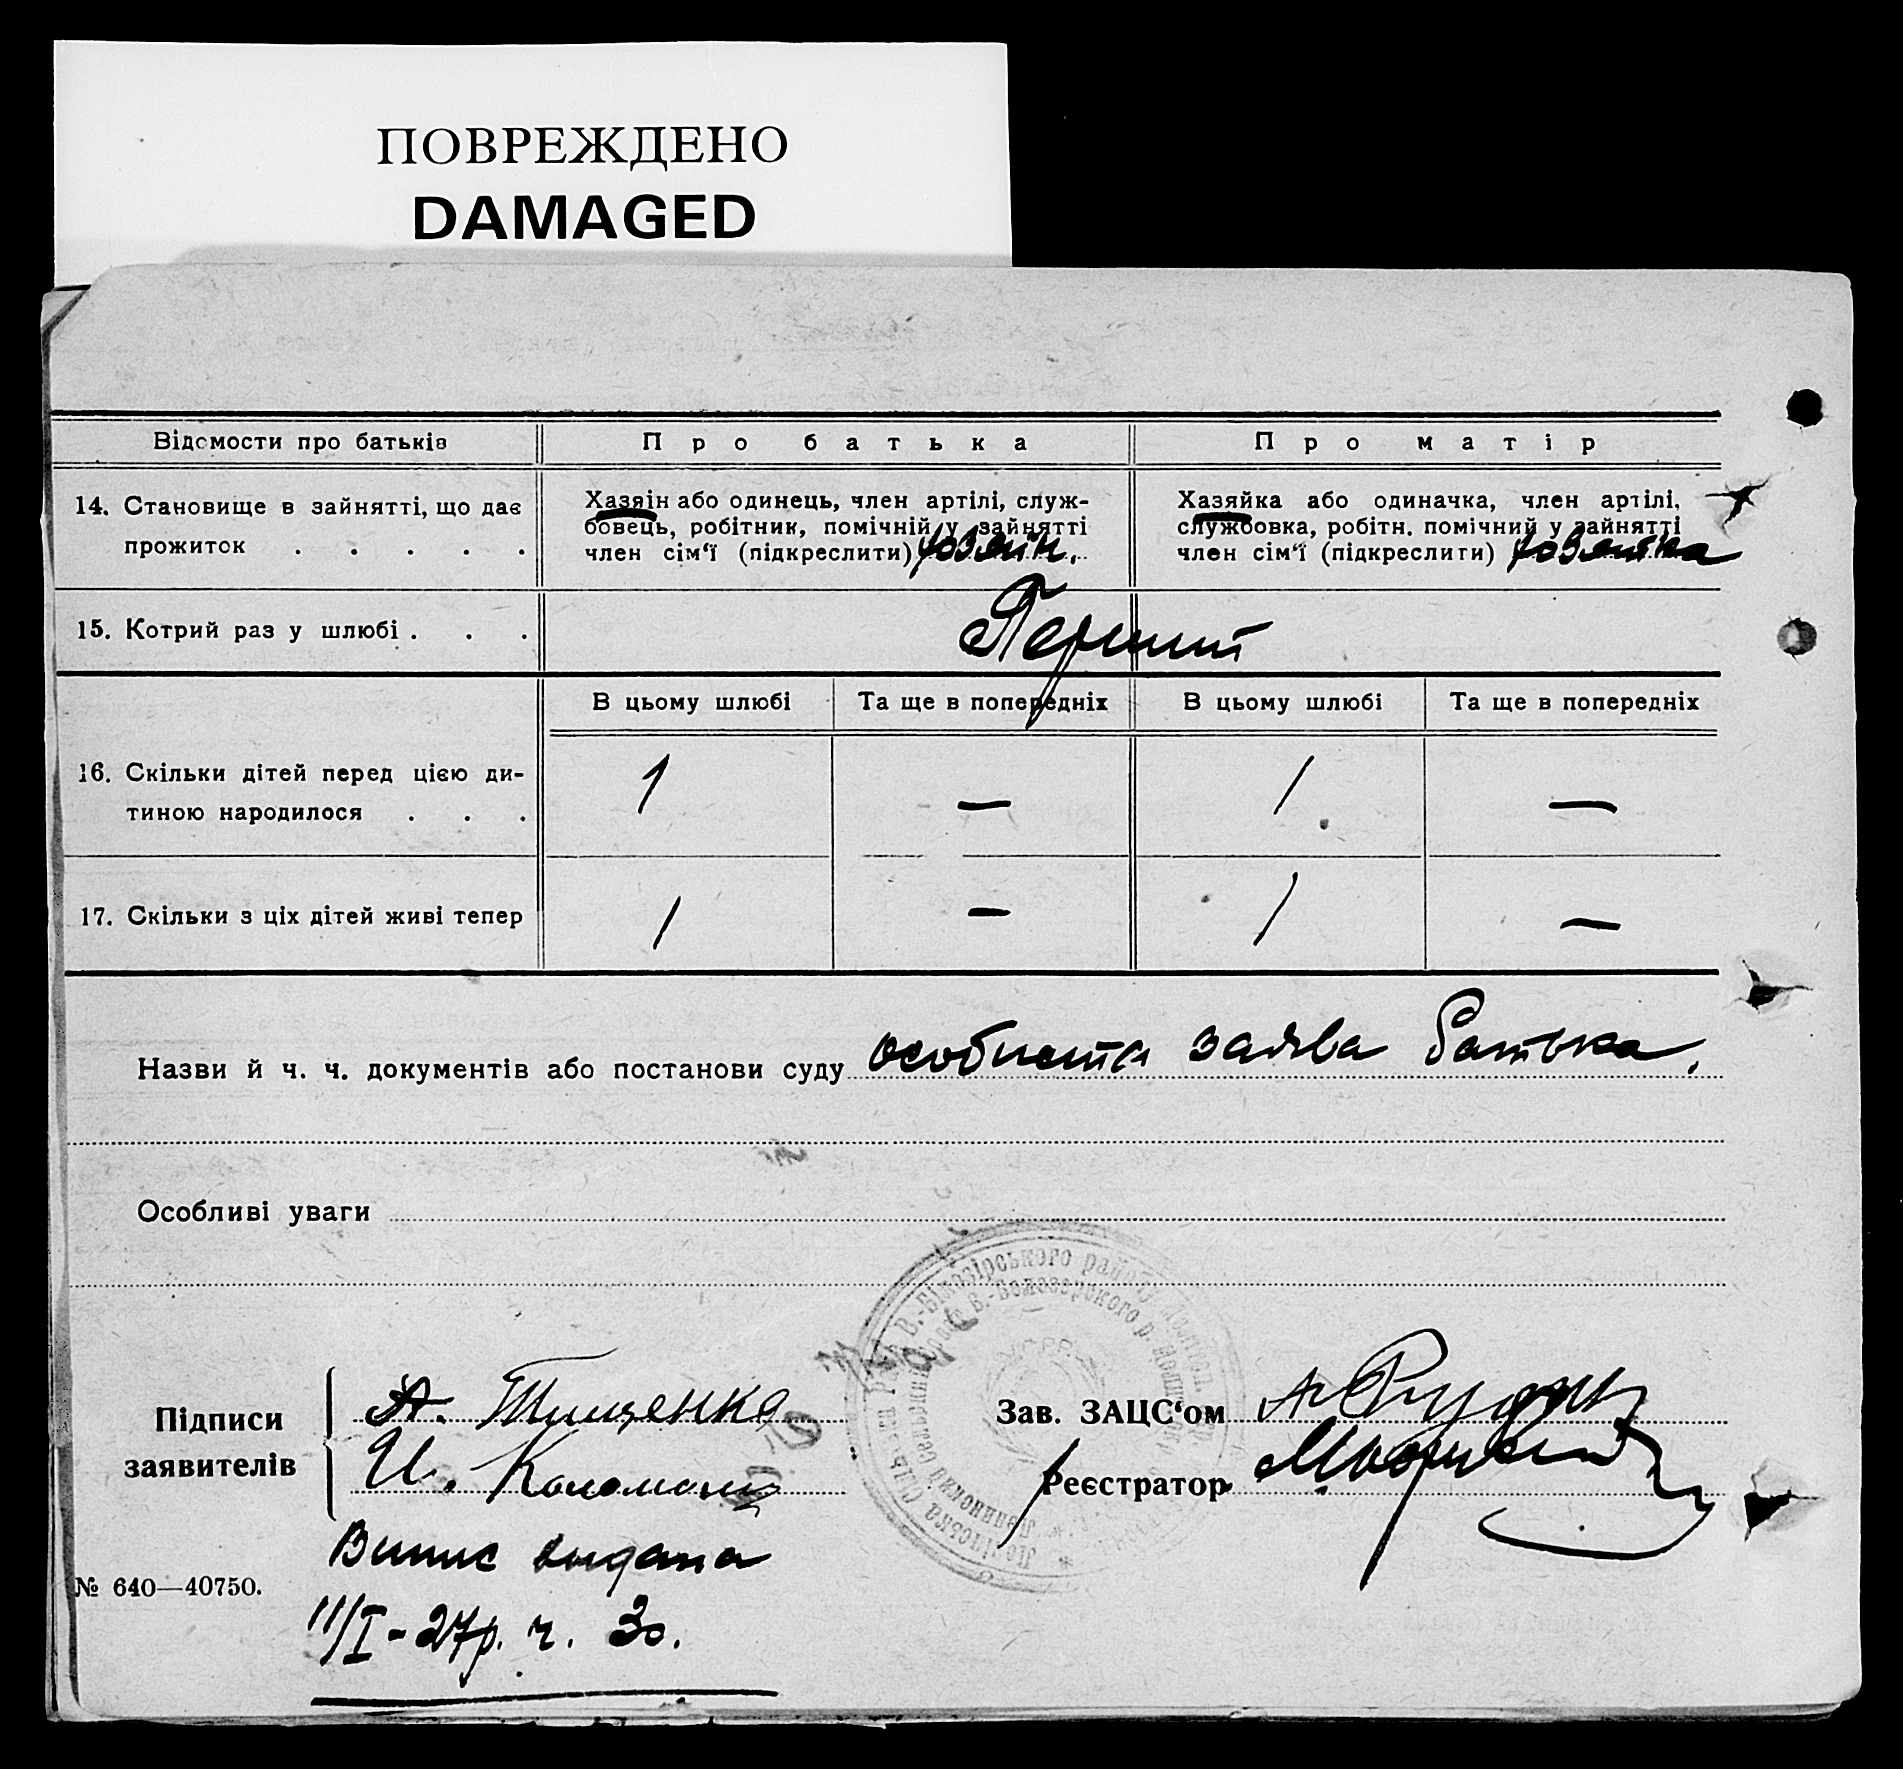 ПОВРЕЖДЕНО
DAMAGED
Відомости про батьків
Про батька
Про матір
14. Становище в зайнятті, що дає
прожиток . . . . .
Хазяїн або одинець, член артілі, служ-
бовець, робітник, помічній у зайнятті
член сім‘ї (підкреслити) хозяїн.
Хазяйка або одиначка, член артілі,
службовка, робітн. помічний у зайнятті
член сім‘ї (підкреслити) хозяйка
15. Котрий раз у шлюбі . . .
Перший
В цьому шлюбі
Та ще в попередніх
В цьому шлюбі
Та ще в попередніх
16. Скільки дітей перед цією ди-
тиною народилося . . .
1 — 1 —
17. Скільки з ціх дітей живі тепер
1 — 1 —
Назви й ч. ч. документів або постанови суду особиста заява батька.
Особливі уваги
Підписи
заявителів
А. Тищенко
И.
Зав. ЗАЦС‘ом
Реєстратор
В.-Білозірського району
В.-Белозерского р.
Випис видана
№ 640—40750.
11/I-27р. ч. 30.